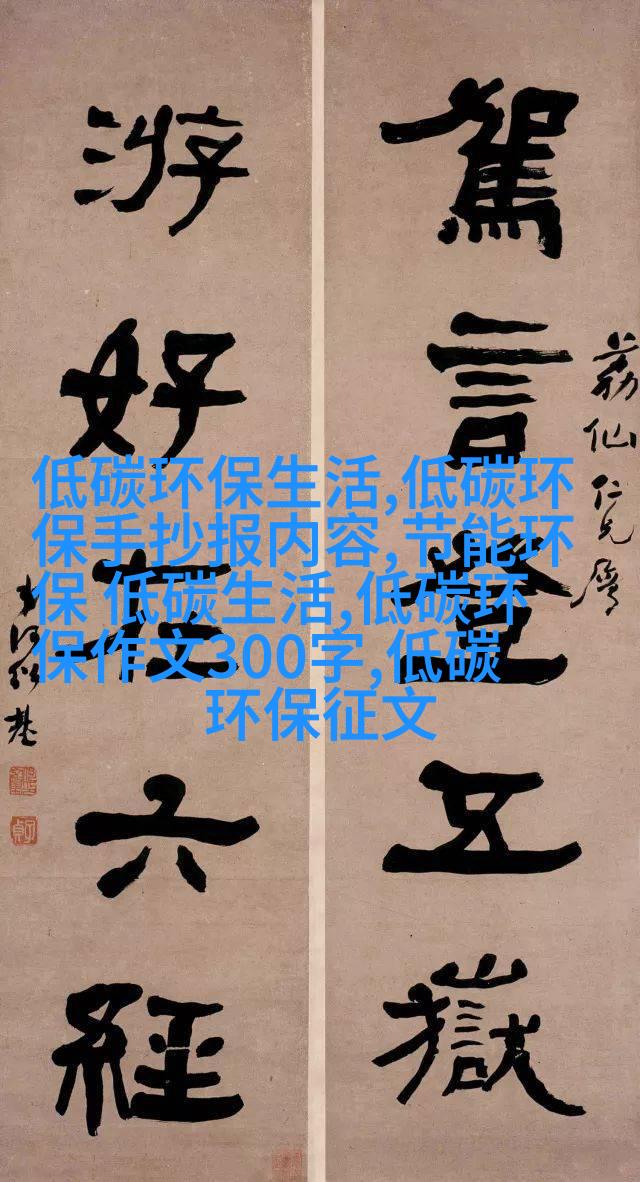 駕言登五嶽
游好在六經
荔仙仁兄屬
何紹基
低碳环保生活,低碳环
保手抄报内容,节能环
保 低碳生活,低碳环
保作文300字,低碳
环保征文